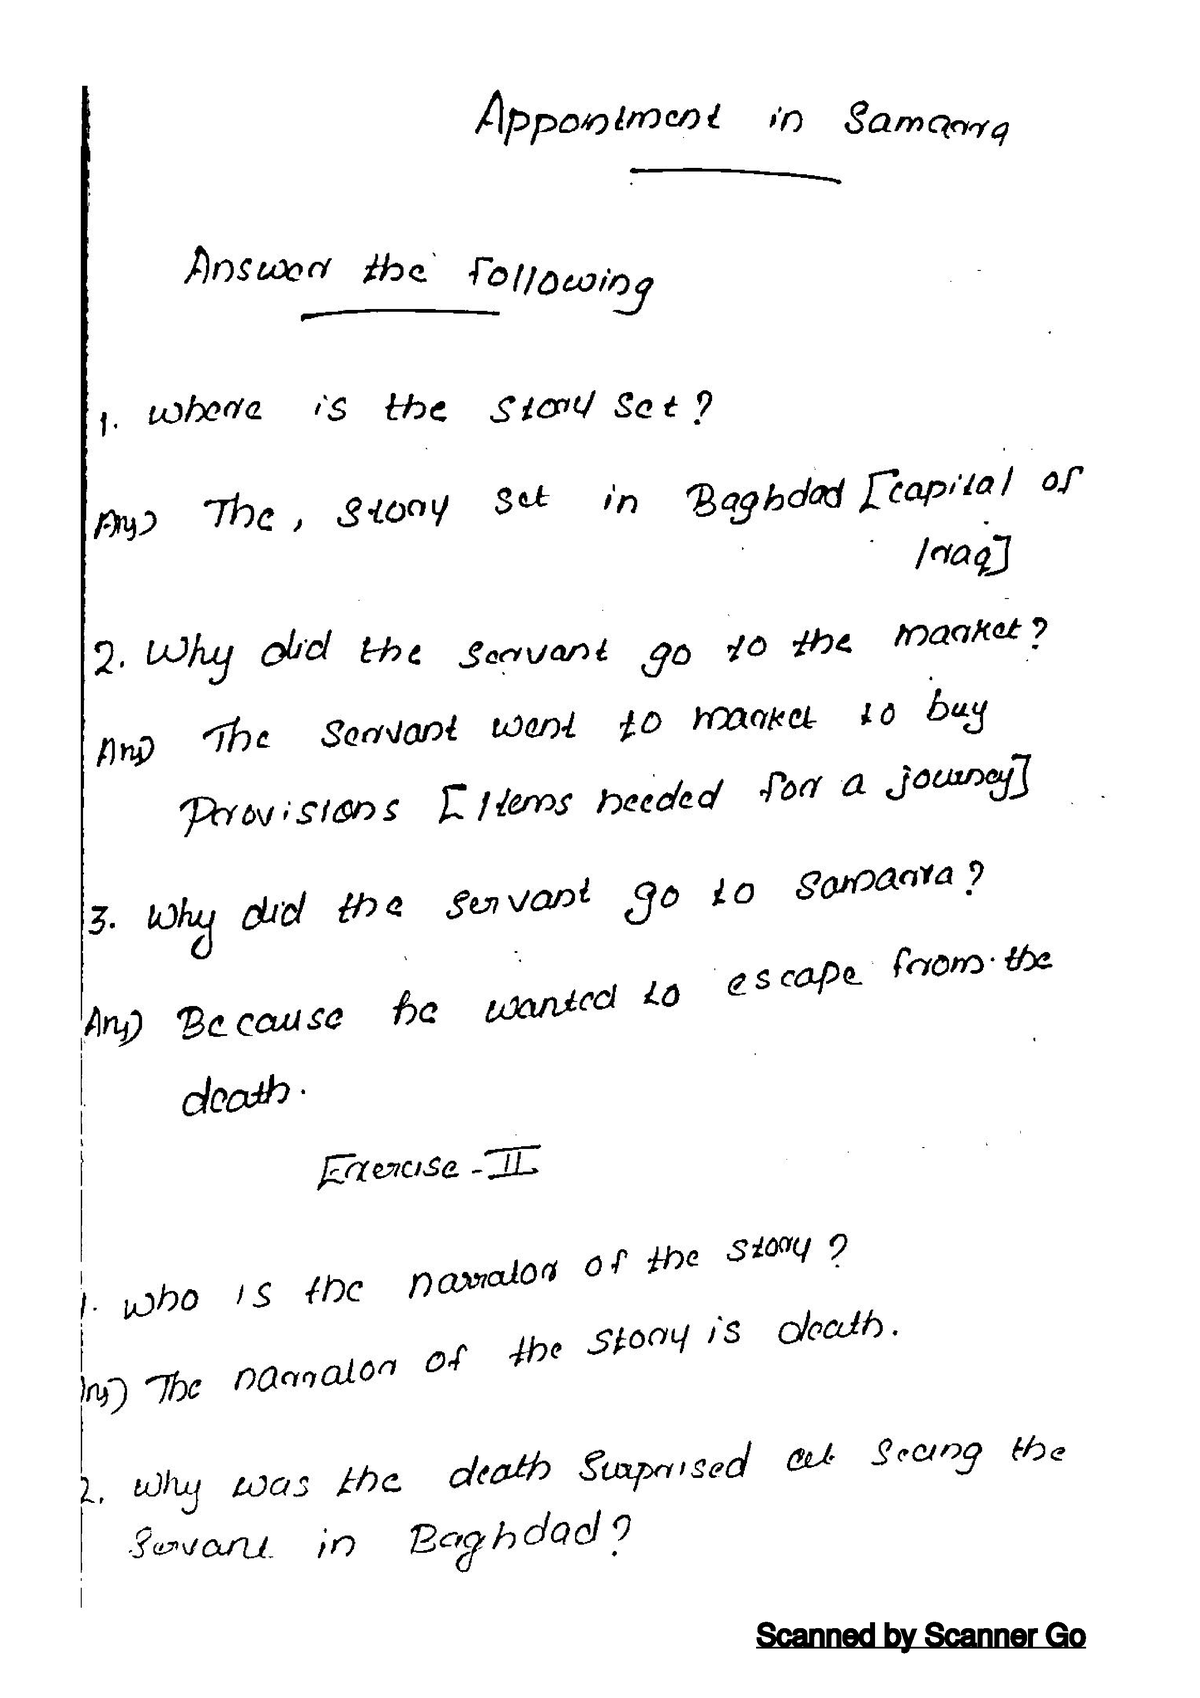 Appointment in Samarra
Answer the following
1. Where is the story set?
Ans) The, story set in Baghdad [capital of
Iraq]
2. Why did the servant go to the market?
Ans) The servant went to market to buy
Provisions [Items needed for a journey]
3. Why did the servant go to Samarra?
Ans) Because he wanted to escape from the
death.
Exercise - II
1. Who is the narrator of the story?
Ans) The narrator of the story is death.
2. Why was the death surprised at seeing the
servant in Baghdad?
Scanned by Scanner Go